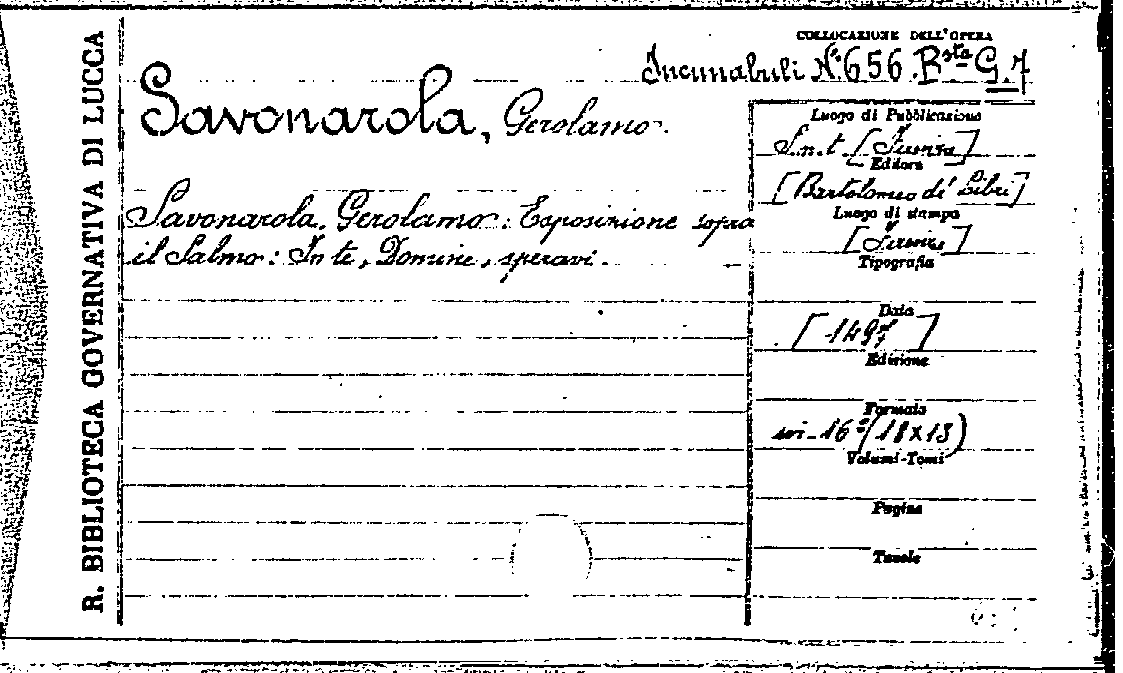 R. BIBLIOTECA GOVERNATIVA DI LUCCA
COLLOCAZIONE DELL'OPERA
Incunabuli N.º 656. Bsta G.7
Savonarola, Gerolamo.
Savonarola, Gerolamo: Esposizione sopra
il Salmo: In te, Domine, speravi.
Luogo di Pubblicazione
S.n.t. [Firenze]
Editore
[Bartolomeo di Libri]
Luogo di stampa
[Firenze]
Tipografia
Data
[149]
Edizione
Formato
in-16º (18x13)
Volumi-Tomi
Pagine
Tavole